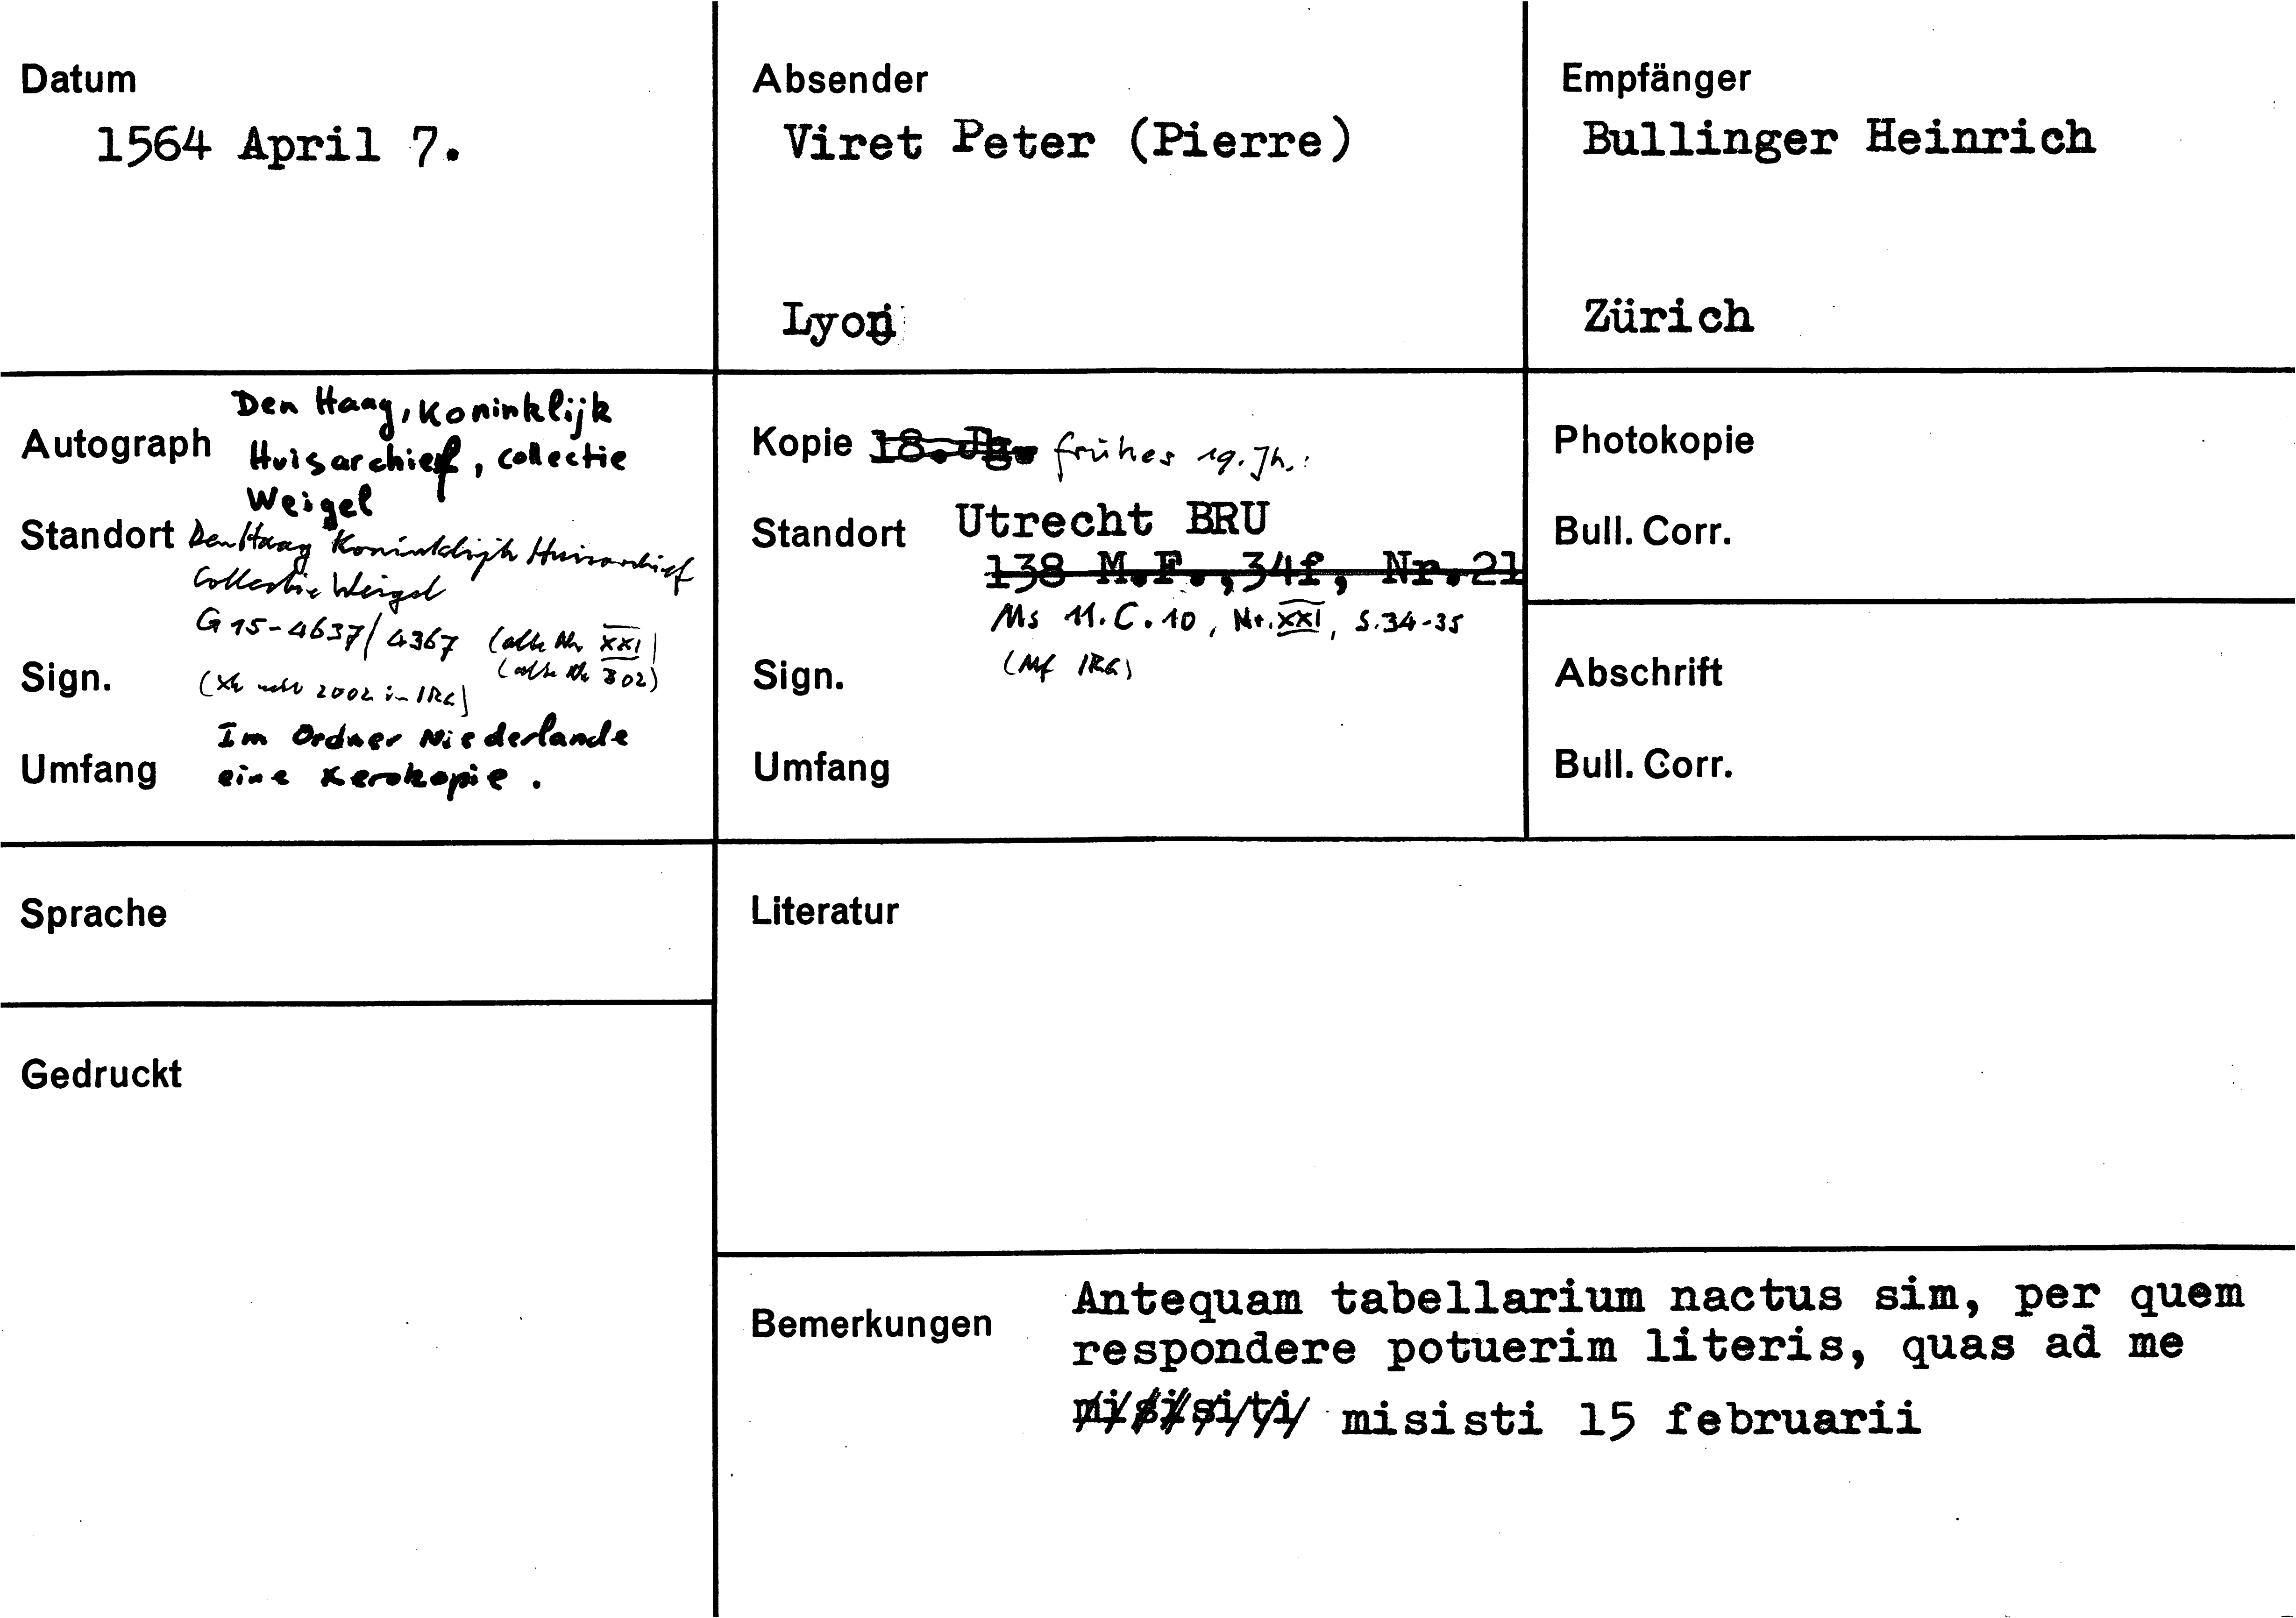 Datum
1564 April 7.
Absender
Viret Peter (Pierre)
Lyon
Empfänger
Bullinger Heinrich
Zürich
Autograph
Den Haag, Koninklijk
Huisarchief, collectie
Weigel
Standort
Den Haag Koninklijk Huisarchief
Collectie Weigel
Sign.
G 15-4637/4367 (alte Nr. XXI)
(alte Nr 302)
2002 in IRG)
Umfang
Im Ordner Niederlande
eine Xerokopie.
Kopie 18. Jh. frühes 19. Jh.:
Standort
Utrecht BRU
138 M.F.,34f, Nr.21
Ms 11.C.10, Nr. XXI, S.34-35
Sign.
(Mf IRG)
Umfang
Photokopie
Bull. Corr.
Abschrift
Bull. Corr.
Sprache
Literatur
Gedruckt
Bemerkungen
Antequam tabellarium nactus sim, per quem
respondere potuerim literis, quas ad me
misisti 15 februarii